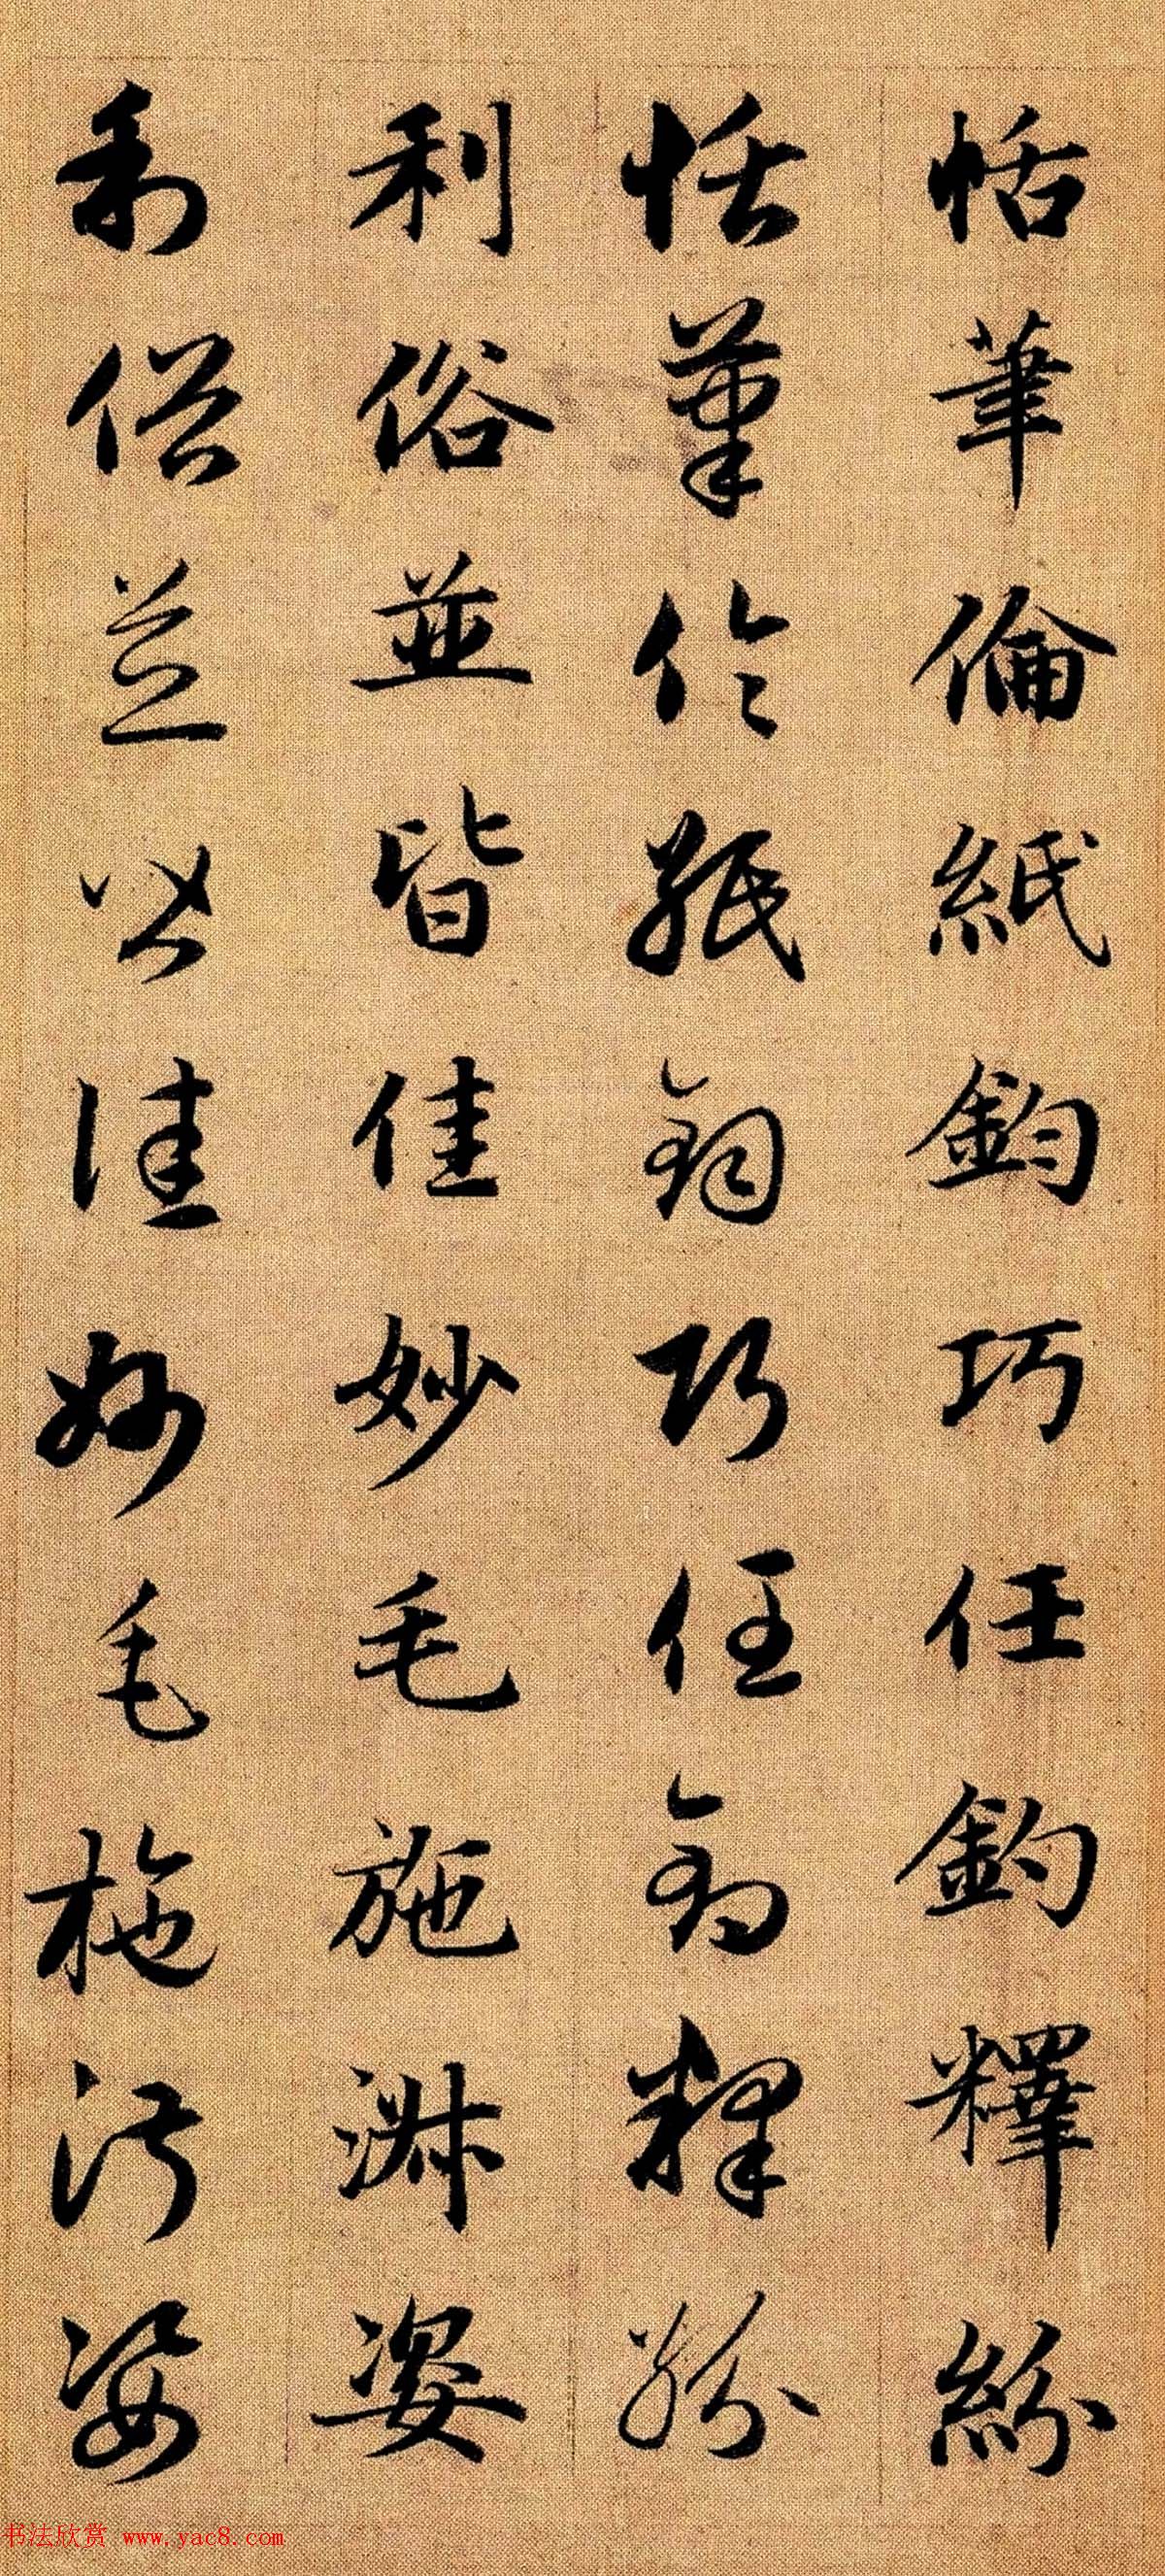 恬筆倫紙鈞巧任鈞釋紛
恬筆倫紙鈞巧任鈞釋紛
利俗並皆佳妙毛施淑姿
利俗並皆佳妙毛施淑姿
书法欣赏 www.yac8.com